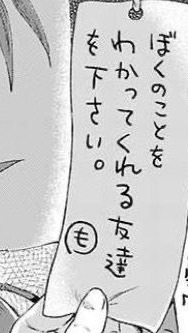 ぼくのことを
わかってくれる友達
を下さい。
も